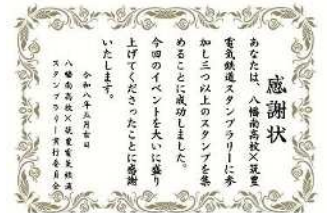 感謝状
あなたは、八幡南高校×筑豊
電気鉄道スタンプラリーに参
加し三つ以上のスタンプを集
めることに成功しました。
今回のイベントを大いに盛り
上げてくださったことに感謝
いたします。
令和八年三月吉日
八幡南高校×筑豊電気鉄道
スタンプラリー実行委員会